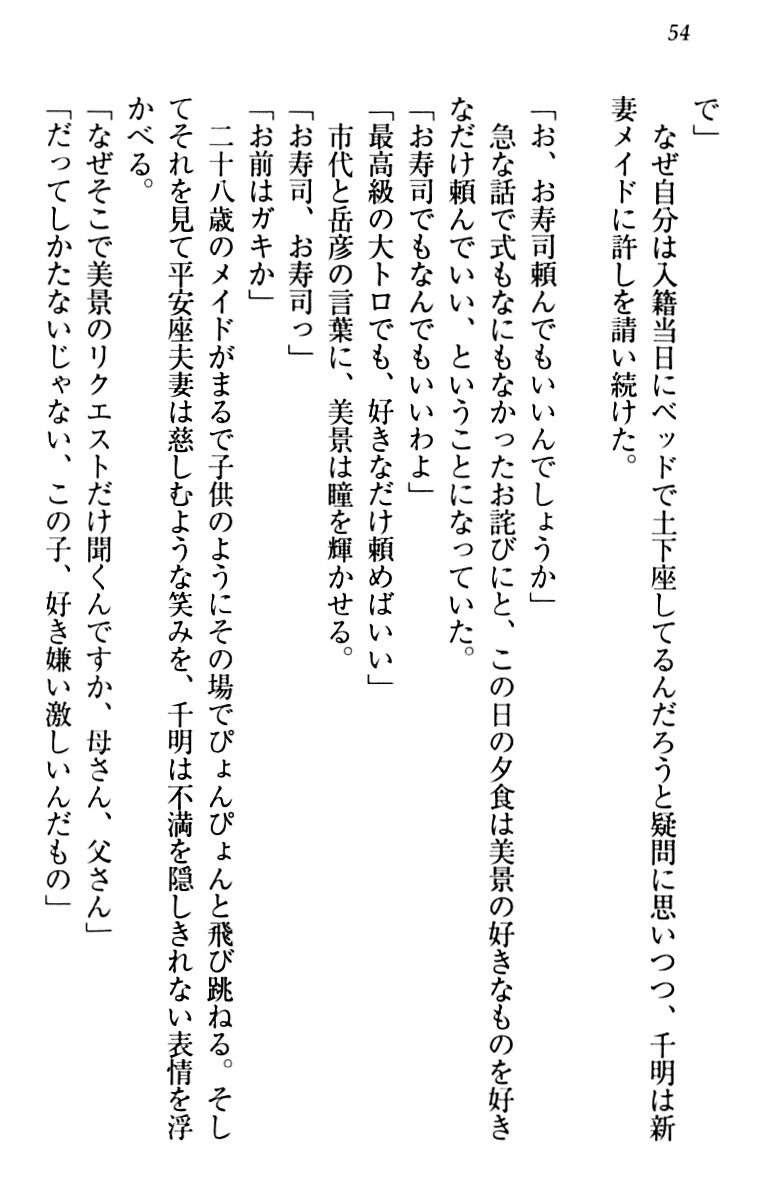 54
で」
　なぜ自分は入籍当日にベッドで土下座してるんだろうと疑問に思いつつ、千明は新
妻メイドに許しを請い続けた。
「お、お寿司頼んでもいいんでしょうか」
　急な話で式もなにもなかったお詫びにと、この日の夕食は美景の好きなものを好き
なだけ頼んでいい、ということになっていた。
「お寿司でもなんでもいいわよ」
「最高級の大トロでも、好きなだけ頼めばいい」
　市代と岳彦の言葉に、美景は瞳を輝かせる。
「お寿司、お寿司っ」
「お前はガキか」
　二十八歳のメイドがまるで子供のようにその場でぴょんぴょんと飛び跳ねる。そし
てそれを見て平安座夫妻は慈しむような笑みを、千明は不満を隠しきれない表情を浮
かべる。
「なぜそこで美景のリクエストだけ聞くんですか、母さん、父さん」
「だってしかたないじゃない、この子、好き嫌い激しいんだもの」